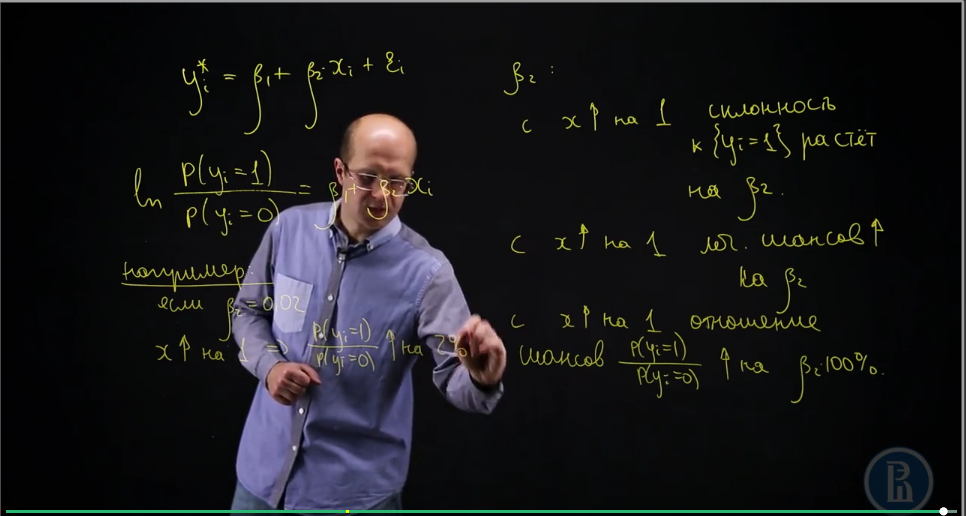 y*ᵢ = β₁ + β₂·xᵢ + εᵢ
ln P(yᵢ=1) / P(yᵢ=0) = β₁ + β₂xᵢ
например:
если β₂ = 0.02
x↑ на 1 => P(yᵢ=1) / P(yᵢ=0) ↑ на 2%
β₂ :
с x↑ на 1 склонность
к {yᵢ=1} растёт
на β₂.
с x↑ на 1 лог. шансов ↑
на β₂
с x↑ на 1 отношение
шансов P(yᵢ=1) / P(yᵢ=0) ↑ на β₂·100%.